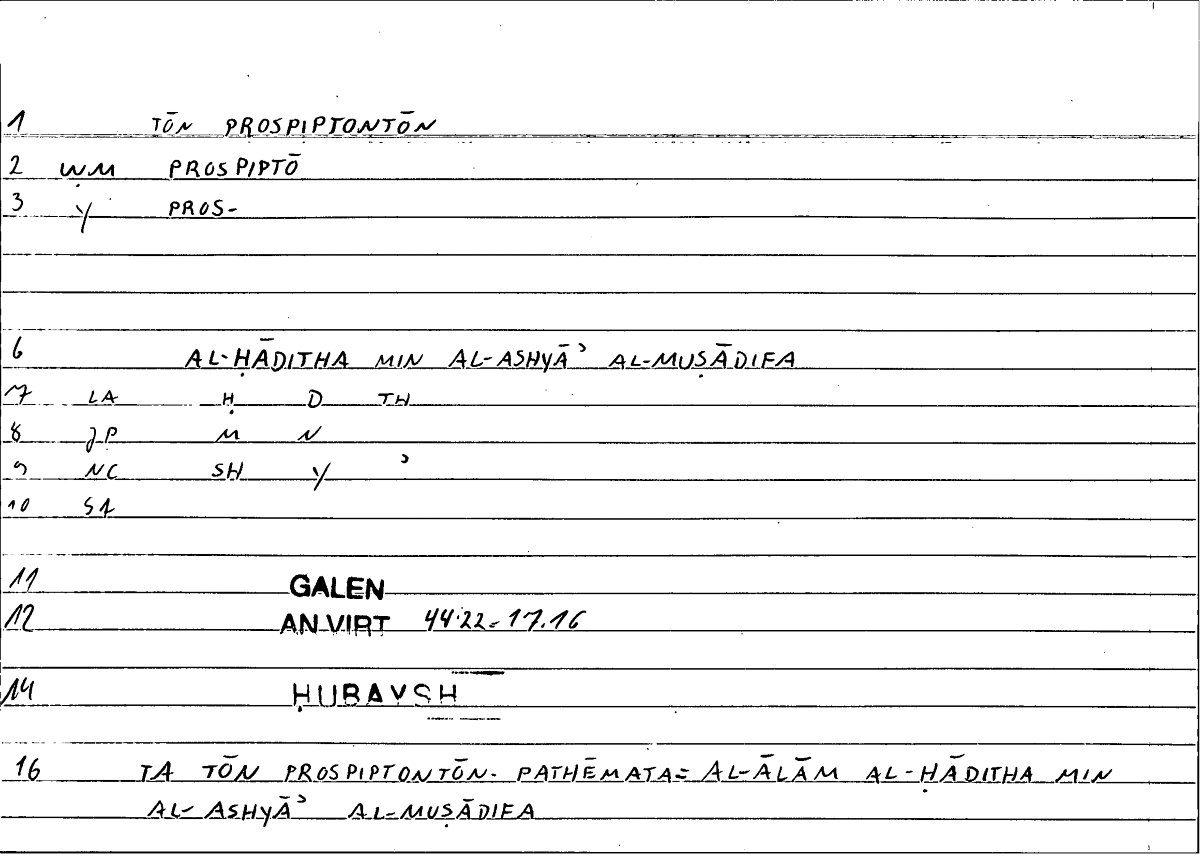 1 TŌN PROSPIPTONTŌN
2 WM PROSPIPTŌ
3 Y PROS-
6 AL-ḤĀDITHA MIN AL-ASHYĀʾ AL-MUṢĀDIFA
7 LA Ḥ D TH
8 JP M N
9 NC SH Y ʾ
10 SA
11 GALEN
12 AN VIRT 44.22=17.16
14 ḤUBAYSH
16 TA TŌN PROSPIPTONTŌN PATHĒMATA= AL-ĀLĀM AL-ḤĀDITHA MIN
AL-ASHYĀʾ AL-MUṢĀDIFA